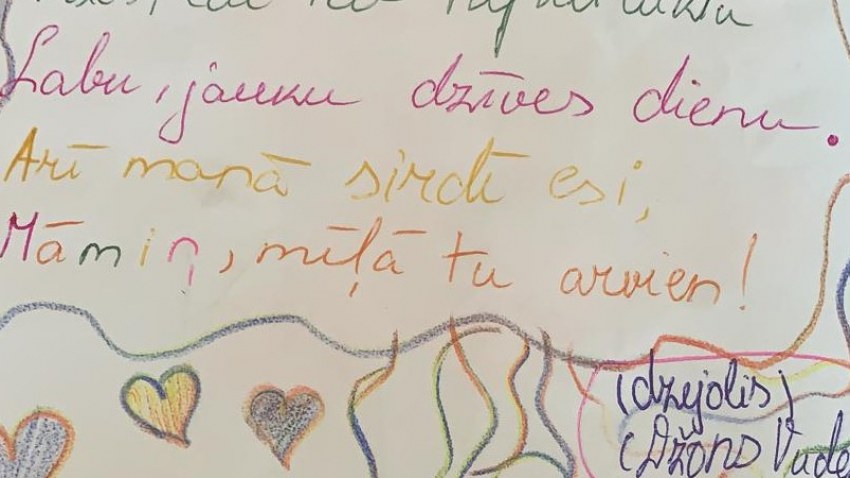 Labu, jauku dzīves dienu.
Arī manā sirdī esi,
Māmiņ, mīļā tu arvien!
(dzejolis)
(Džons